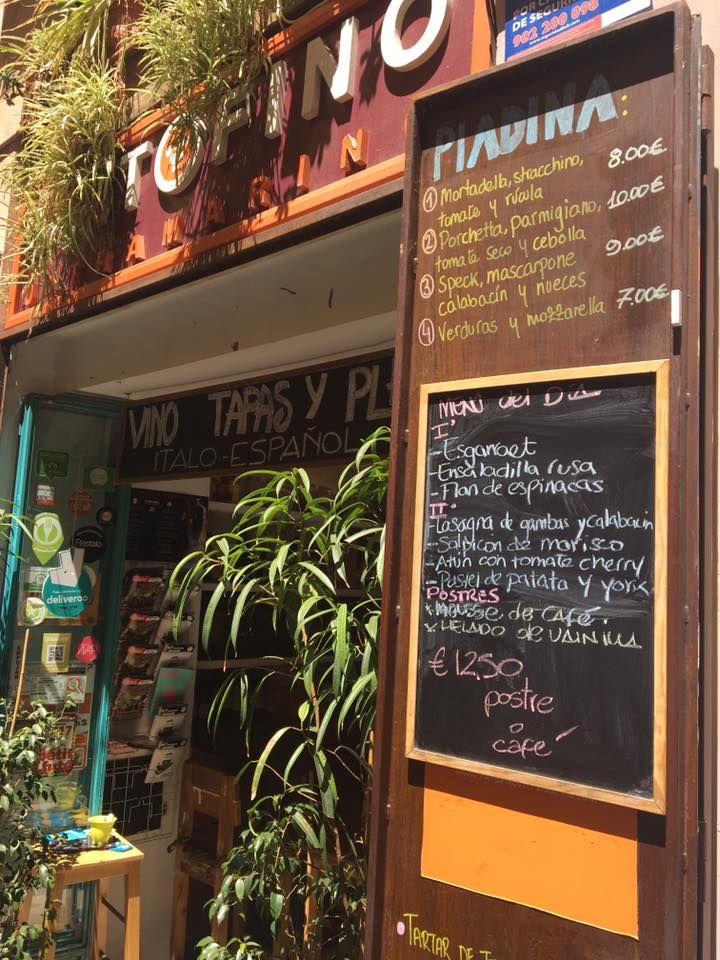 DE SEGURI
902 200 098
TOFINO
PIADINA:
① Mortadella, stracchino, 8.00€
tomate y rúcula
② Porchetta, parmigiano, 10.00€
tomate seco y cebolla
③ Speck, mascarpone 9.00€
calabacín y nueces
④ Verduras y mozzarella 7.00€
VINO TAPAS Y PL
ITALO-ESPAÑOL
Menú del Día
I°
-Esgarraet
-Ensaladilla rusa
-Flan de espinacas
II°
-Lasagna de gambas y calabacín
-Salpicon de marisco
-Atún con tomate cherry
-Pastel de patata y york
POSTRES
de CAFÉ
x HELADO de VAINILLA
€ 12,50
postre
o
café
Restalo
deliveroo
TARTAR DE